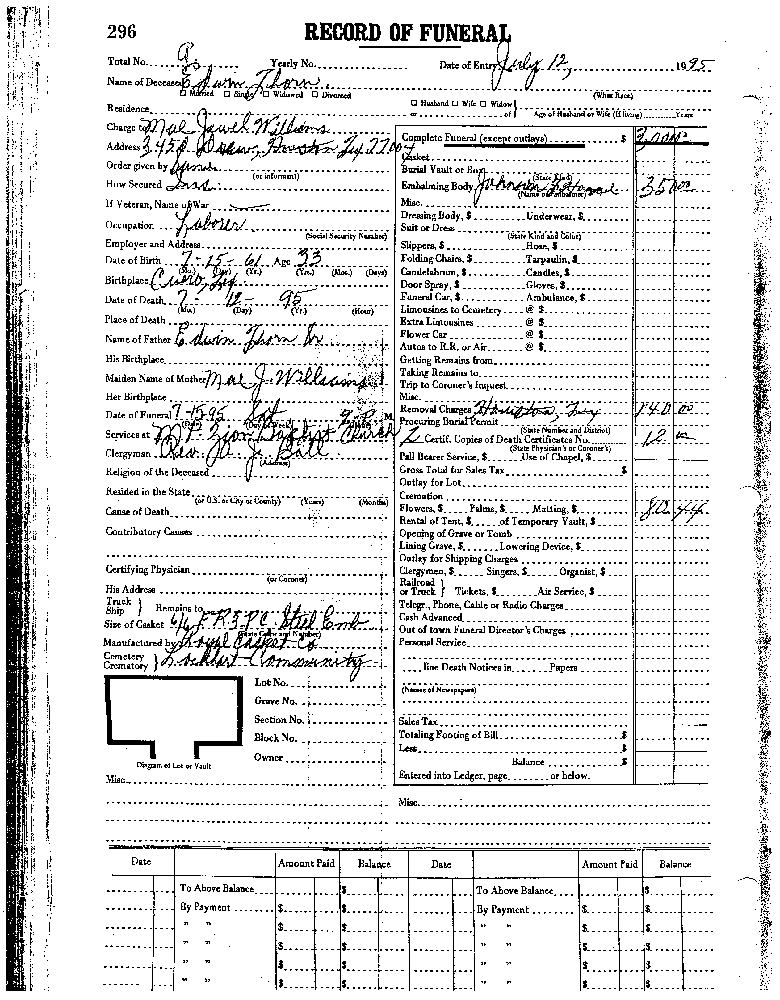 296
RECORD OF FUNERAL
Total No. 9 Yearly No. Date of Entry July 12, 1995
Name of Deceased Edwin Thorn
☐ Married ☐ Single ☐ Widowed ☐ Divorced (What Race)
☐ Husband ☐ Wife ☐ Widow
or of Age of Husband or Wife (if living) Years
Residence
Charge to Mae Jewel Williams
Address 3458 Drew, Houston Tex 77004
Order given by
(or informant)
How Secured Ins
If Veteran, Name of War
Occupation Laborer
(Social Security Number)
Employer and Address
Date of Birth 7-15-61 Age 33
(Mo.) (Day) (Yr.) (Yrs.) (Mos.) (Days)
Birthplace Cuero, Tex
Date of Death 7-12-95
(Mo.) (Day) (Yr.) (Hour)
Place of Death
Name of Father Edwin Thorn Sr
His Birthplace
Maiden Name of Mother Mae J. Williams
Her Birthplace
Date of Funeral 7-15-95 Sat M
Services at Mt Zion Baptist Church
Clergyman Rev. J. Ball
(Address)
Religion of the Deceased
Resided in the State
(or U.S. or City or County) (Years) (Months)
Cause of Death
Contributory Causes
Certifying Physician
(or Coroner)
His Address
Truck
Ship Remains to
Size of Casket 6/6 Steel Emb
(State Color and Number)
Manufactured by Royal Casket Co
Cemetery
Crematory Lockhart Community
Lot No.
Grave No.
Section No.
Block No.
Owner
Diagram of Lot or Vault
Misc.
Complete Funeral (except outlays) $
Casket
Burial Vault or Box
(State Kind)
Embalming Body Johnson 35000
(Name of Embalmer)
Misc.
Dressing Body, $ Underwear, $
Suit or Dress
(State Kind and Color)
Slippers, $ Hose, $
Folding Chairs, $ Tarpaulin, $
Candelabrum, $ Candles, $
Door Spray, $ Gloves, $
Funeral Car, $ Ambulance, $
Limousines to Cemetery @ $
Extra Limousines @ $
Flower Car @ $
Autos to R.R. or Air @ $
Getting Remains from
Taking Remains to
Trip to Coroner's Inquest
Misc.
Removal Charges Houston, Tex 140 00
Procuring Burial Permit
(State Number and District)
2 Certif. Copies of Death Certificates No. 12 00
(State Physician's or Coroner's)
Pall Bearer Service, $ Use of Chapel, $
Gross Total for Sales Tax $
Outlay for Lot
Cremation
Flowers, $ Palms, $ Matting, $ 80 44
Rental of Tent, $ of Temporary Vault, $
Opening of Grave or Tomb
Lining Grave, $ Lowering Device, $
Outlay for Shipping Charges
Clergymen, $ Singers, $ Organist, $
Railroad
or Truck Tickets, $ Air Service, $
Telegr., Phone, Cable or Radio Charges
Cash Advanced
Out of town Funeral Director's Charges
Personal Service
line Death Notices in Papers
(Names of Newspapers)
Sales Tax
Totaling Footing of Bill $
Less $
Balance $
Entered into Ledger, page or below.
Misc.
Date Amount Paid Balance Date Amount Paid Balance
To Above Balance $ To Above Balance $
By Payment $ $ By Payment $ $
" " $ $ " " $ $
" " $ $ " " $ $
" " $ $ " " $ $
" " $ $ " " $ $